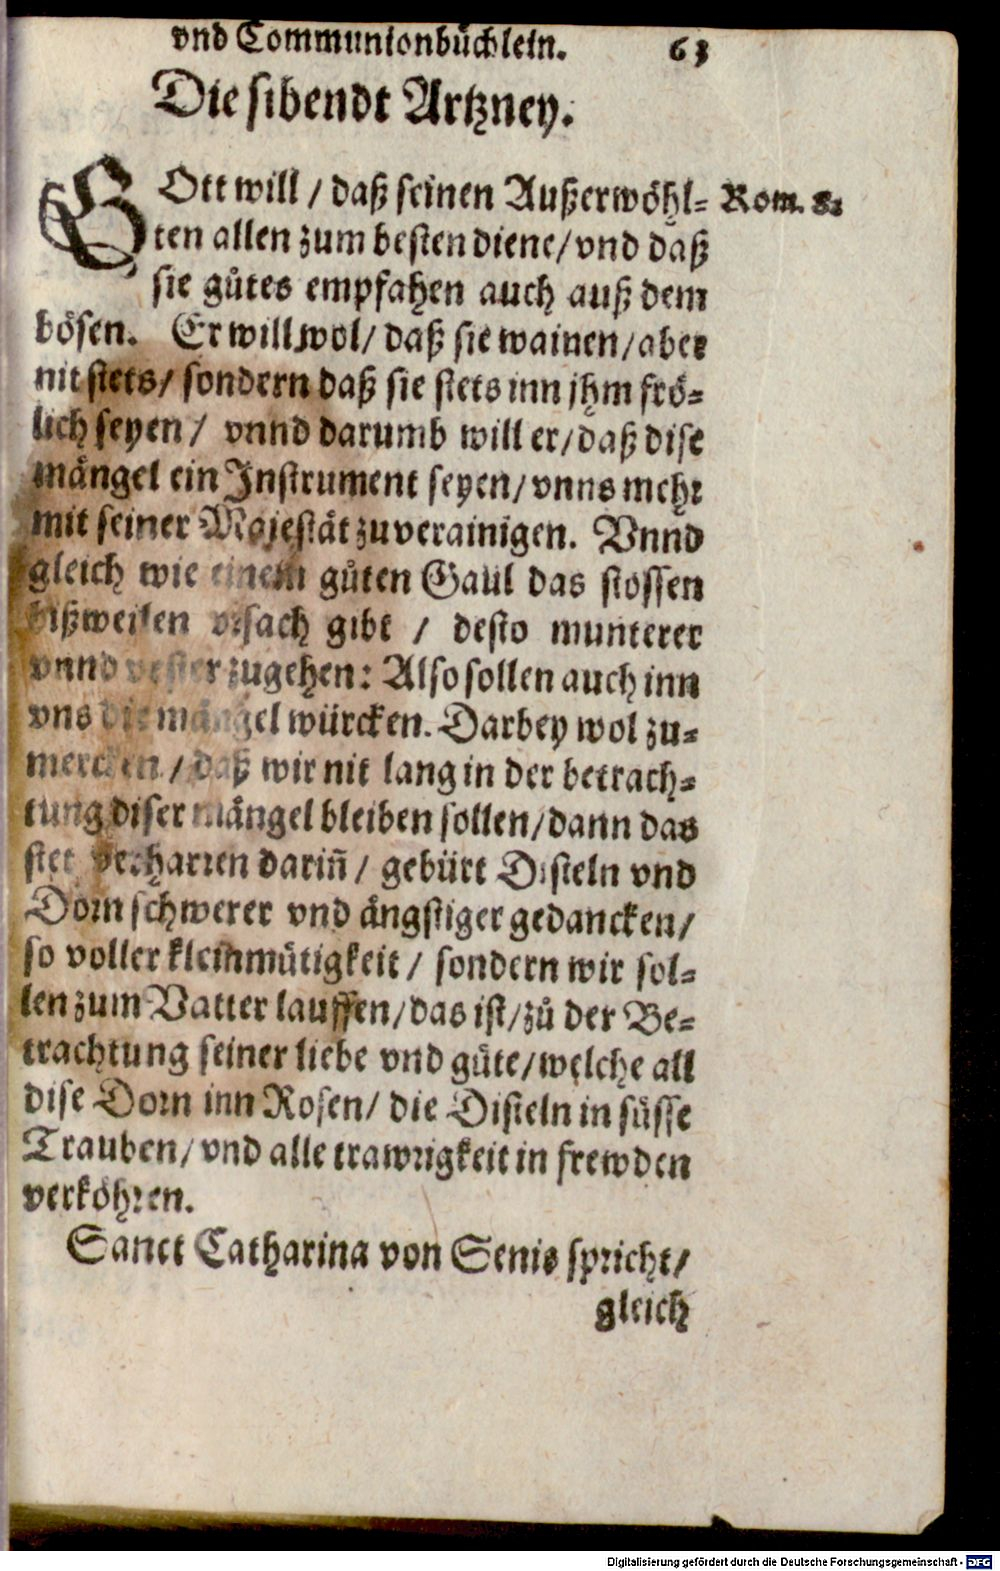 vnd Communionbuͤchlein. 63
Die sibendt Artzney.
GOtt will / daß seinen Außerwoͤhl= Rom. 8.
ten allen zum besten diene / vnd daß
sie guͤtes empfahen auch auß dem
boͤsen. Er will wol / daß sie wainen / aber
nit stets / sondern daß sie stets inn jhm froͤ=
lich seyen / vnnd darumb will er / daß dise
maͤngel ein Instrument seyen / vnns mehr
mit seiner Majestaͤt zuverainigen. Vnnd
gleich wie einem guͤten Gaul das stossen
bißweilen vrsach gibt / desto munterer
vnnd vester zugehen: Also sollen auch inn
vns die maͤngel wuͤrcken. Darbey wol zu=
mercken / daß wir nit lang in der betrach=
tung diser maͤngel bleiben sollen / dann das
stet verharren dariñ / gebuͤrt Disteln vnd
Dorn schwerer vnd aͤngstiger gedancken /
so voller kleinmuͤtigkeit / sondern wir sol=
len zum Vatter lauffen / das ist / zů der Be=
trachtung seiner liebe vnd guͤte / welche all
dise Dorn inn Rosen / die Disteln in suͤsse
Trauben / vnd alle trawrigkeit in frewden
verkoͤhren.
Sanct Catharina von Senis spricht /
gleich
Digitalisierung gefördert durch die Deutsche Forschungsgemeinschaft - DFG